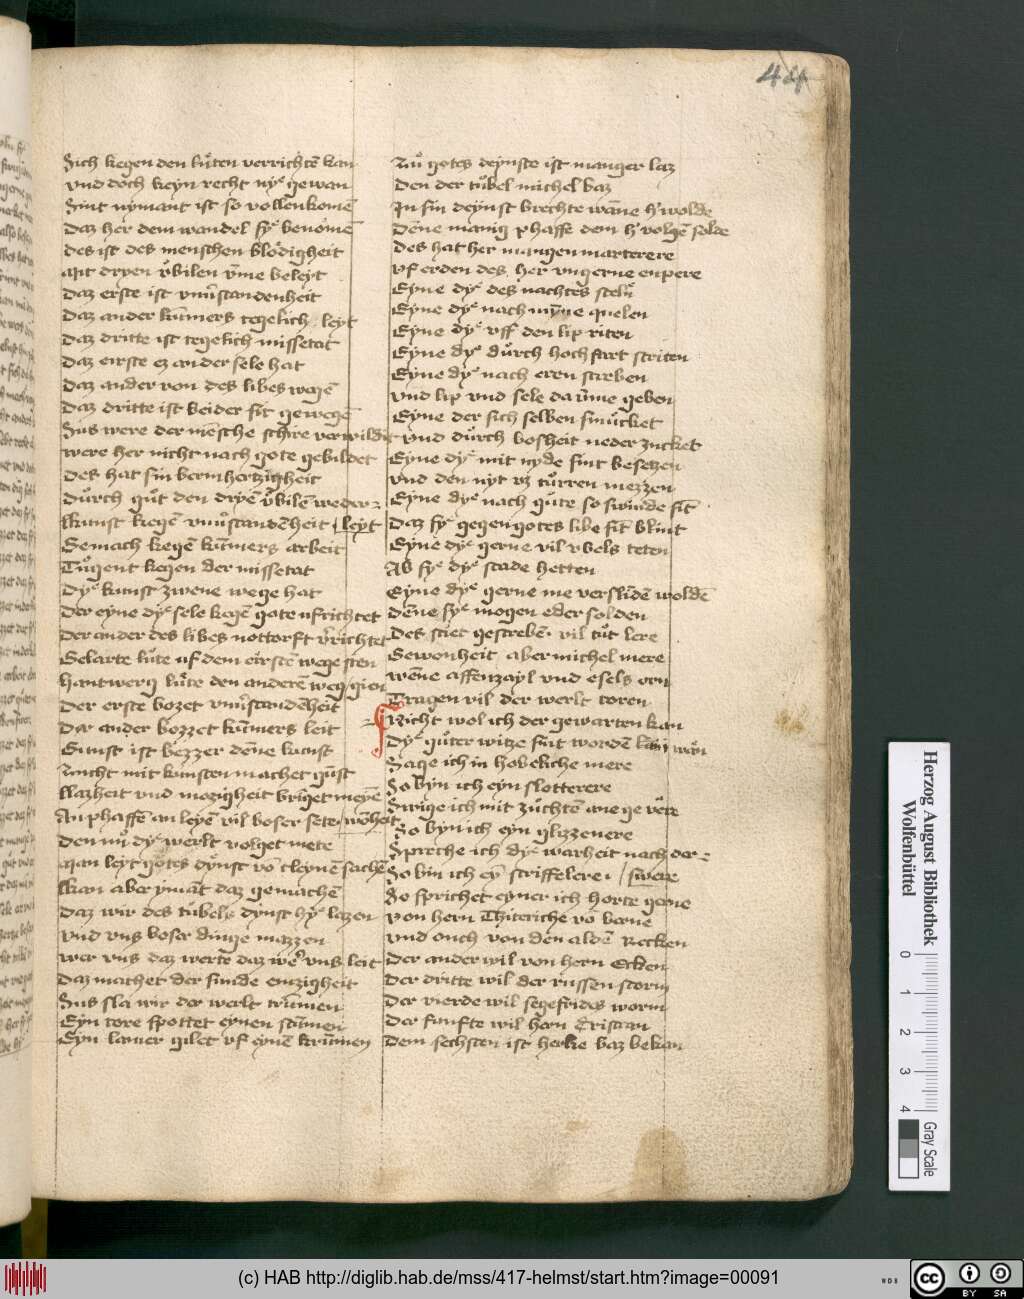 44
Sich kegen den luͦten verrichtē kan
vnd doch keyn recht nyͤ gewan
Sint nymant ist so vollenkomē
Daz her dem wandel syͤ benomē
des ist des menschen blodigheit
Mit dryen vbilen vme beleyt
Daz erste ist vnuͦstandenheit
Daz ander kūmers tegelich leyt
Daz dritte ist tegelich missetat
Daz eirste ez an der sele hat
Daz ander von des libes wegē
Daz dritte ist beider sit gewegē
Sus were der mēsche schire verwildit
were her nicht nach gote gebildet
Des hat sin bermhertzigheit
Durch guͦt den dryē vbilē weder
kunst kegē vnuͦstandēheit / leyt
Gemach kegē kūmers arbeit
Tuͦgent kegen der missetat
Dyͤ kunst zwene wege hat
Der eyne dyͤ sele kegē gote ufrichtet
Der ander des libes nottorft vrichtet
Gelarte luͦte uf dem eirstē wege sten
hantwerg luͦte den anderē weg gien
Der erste bozet vnuͦstandēheit
Dar ander bozzet kūmers leit
Gunst ist bezzer dēne kunst
Nicht mit kunsten machet gunst
Lazheit vnd mozigheit briget meyē
An phaffē an leyē vil boser sete wōheit
Den nuͦ dyͤ werlt volget mete
Man leyt gotes dynst vō cleynē sachē
kan aber ymāt daz gemachē
Daz wir des tuͦbels dynst hyͤ lazen
vnd vns boser dinge mazzen
wer vns daz werte daz weͦ vns leit
Daz machet der sunde emzigheit
Sus sla wir der werlt trūmen
Eyn tore spottet eynen stūmen
Eyn lamer gilet vf eynē krūmen
Zuͦ gotes deynste ist manger laz
Den der tuͦbel michel baz
In sin deynst brechte wāne h' wolde
Dēne manig phaffe dem h' volgē solde
Des hat her mangen marterere
vf erden des her vngerne enpere
Eyne dyͤ des nachtes steln
Eyne dyͤ nach mȳne quelen
Eyne dyͤ vff den lip riten
Eyne dyͤ durch hochfart striten
Eyne dyͤ nach eren streben
vnd lip vnd sele da ūme geben
Eyne der sich selben smuͦcket
vnd durch bosheit neder zucket
Eyne dyͤ mit nyde sint besezen
vnd den nyt vz tuͦrren mezzen
Eyne dyͤ nach guͦte so swinde sīt
Daz syͤ gegen gotes libe sīt blint
Eyne dyͤ gerne vil vbels teten
Ab syͤ dyͤ stade hetten
Eyne dyͤ gerne me verslīdē woldē
Dēne syͤ mogen eder solden
Des stiet gescrebē vil tuͦt lere
Gewonheit aber michel mere
wēne affenzayl vnd esels orn
Tragen vil der werlt toren
Nicht wol ich der gewarten kan
Dyͤ guͦter witze sint wordē lan wan
Sage ich in hobeliche mere
So byn ich eyn slotterere
Swige ich mit zuͦchtē ane geuere
So byn ich eyn glizzenere
Spreche ich dyͤ warheit nach der
So bin ich ey striffelere / swere
So sprichet eyner ich horte gerne
von hern Thiteriche vō berne
vnd ouch von den aldē Recken
Der ander wil von hern Ecken
Der dritte wil der russen storm
Der vierde wil segefrides worm
Der funfte wil hern Tristran
Dem sechsten ist herke baz bekan
Herzog August Bibliothek
Wolfenbüttel
0 1 2 3 4
Gray Scale
(c) HAB http://diglib.hab.de/mss/417-helmst/start.htm?image=00091
WDB
cc BY SA